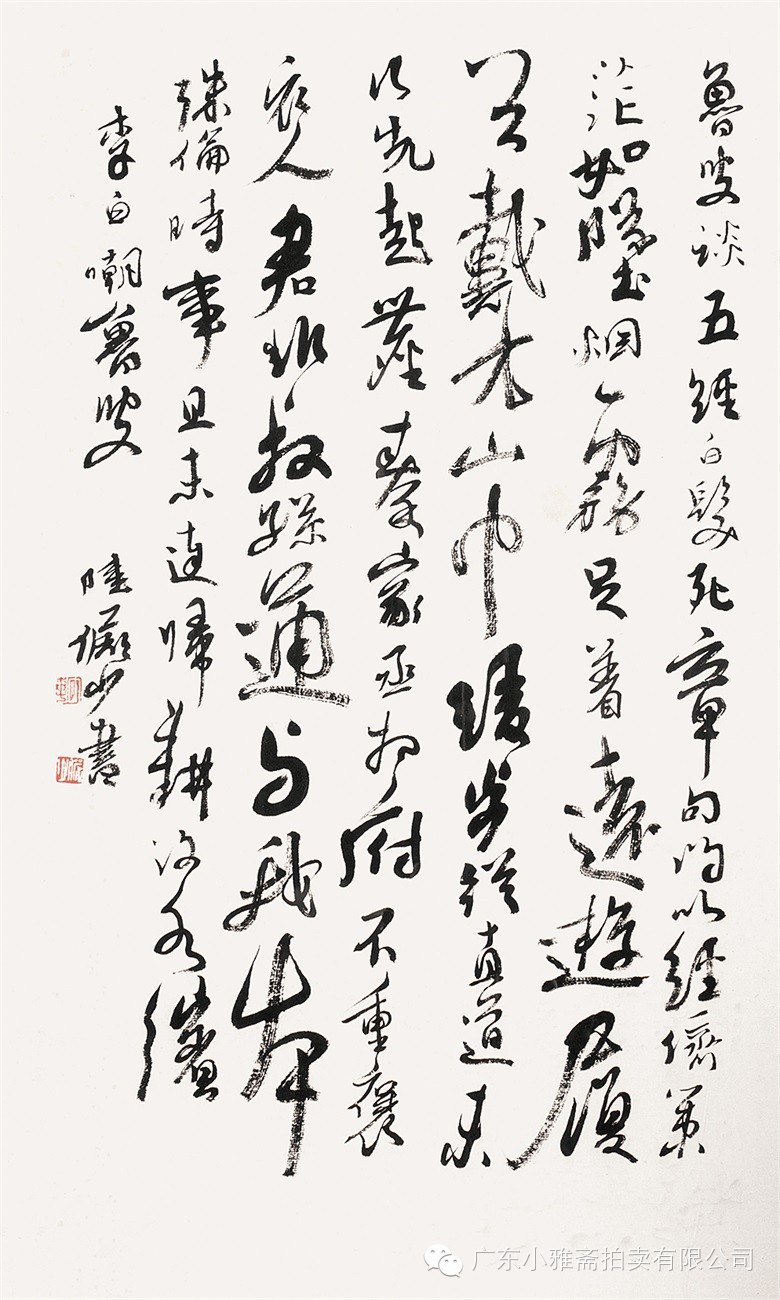 魯叟談五經白髮死章句問以經濟策
茫如墜烟霧足着遠遊履
首戴方山巾緩步從直道未
行先起塵秦家丞相府不重褒
衣人君非叔孫通与我本
殊倫時事且未達歸耕汶水濱
李白嘲魯叟 陸儼少書
广东小雅斋拍卖有限公司